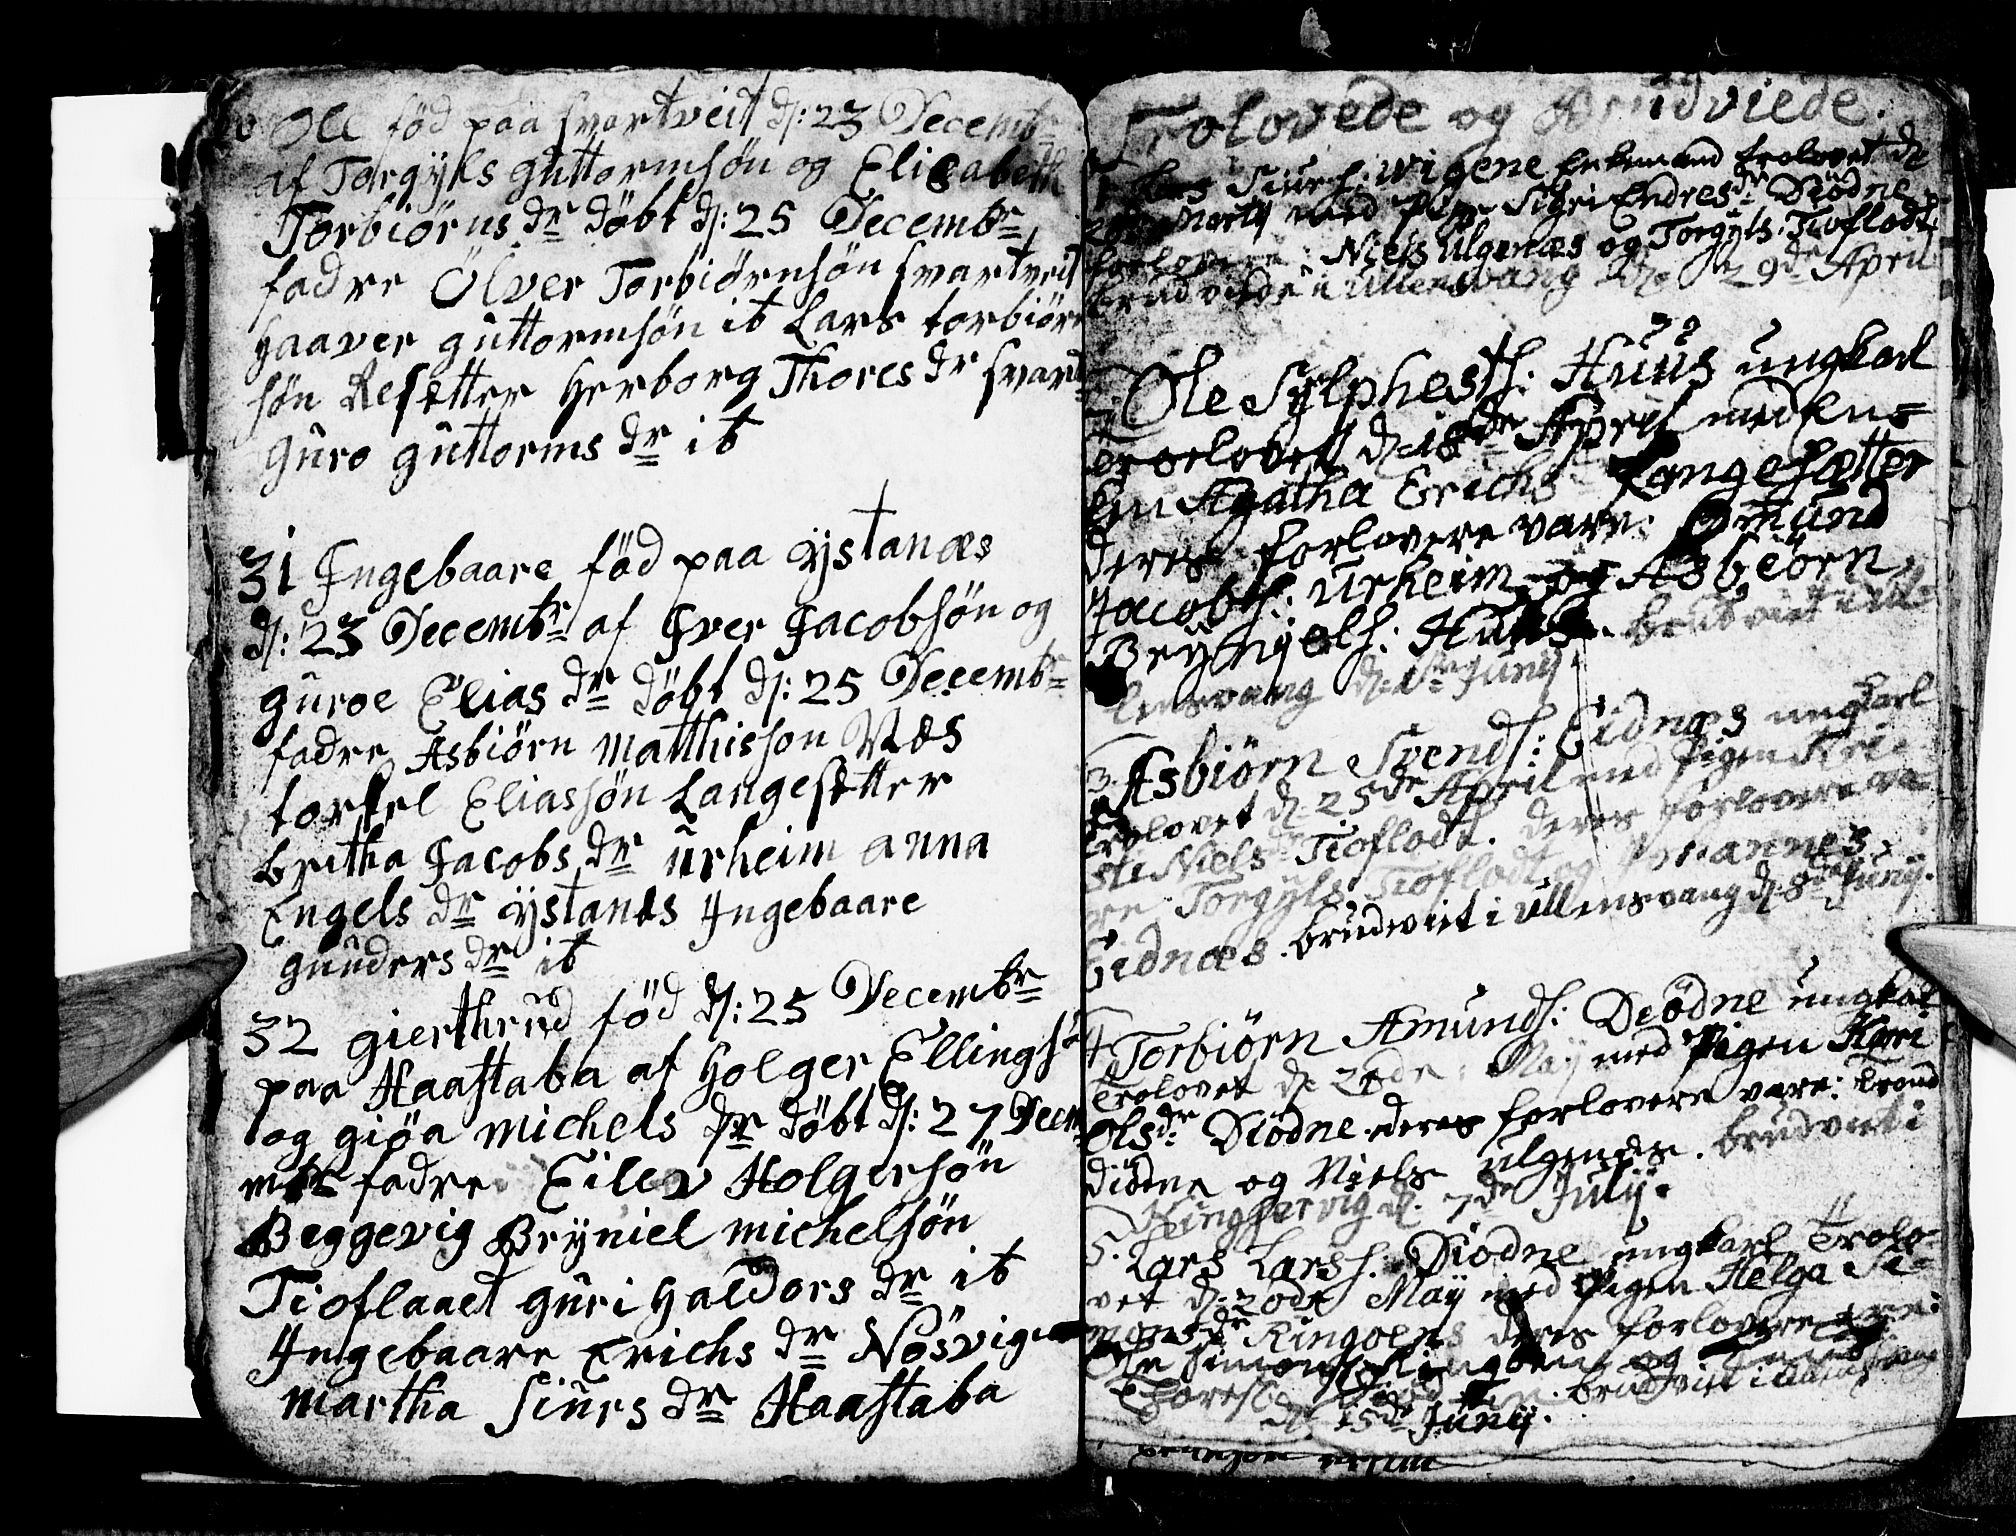 Ole född paa svartveit d: 23 Decembr
af Torgÿls guttormsøn og Elisabeth
Torbiørns dr döbt d: 25 Decembr
fadre Ölver Torbiørnsøn svartveit
Haaver guttormsøn it Lars torbiørn
søn Resetter Herborg Thores dr svart
guro guttorms dr it
31 Ingebaare föd paa ÿstanæs
d: 23 Decembr af Iver Jacobsøn og
guroe Elias dr döbt d: 25 Decembr
fadre Asbiørn Matthisson Næs
torkel Eliassøn Langesetter
britha Jacobs dr urheim anna
Engels dr ÿstanes Ingebaare
gunders dr it
32 gierthrud föd d: 25 Decembr
paa Haastaba af Holger Ellings
og giöa michels dr döbt d: 27 Decem
fadre Eilev Holgersøn
Beggevig Brÿniel michelsøn
Tioflaaet guri Haldors dr it
Ingebaare Erichs dr Nösvigen
martha siurs dr Haastaba
Trolovede og Brudviede.
1 Lars Siurs: Wigene Enkemand trolovet d
Martÿ med Pige Sigri Endresdr Diödne
forlovere: Niels Ulgenæs og Torgÿls Tioflodt
brudviede i Ullensvang d: 29de April
2 Ole Sÿlphesths: Huus ungkarl
Troelovet d: 18de Apriil med En-
ken Agatha Erichsdr Langesætter
deres forlovere vare: Omund
Jacobs: Urheim og Asbiörn
Brÿnjels: Huus. brudviet i Ul-
lensvang d: 1ste Junÿ.
3. Asbiörn Svends: Eidnæs ungkarl
trolovet d: 25de April med Pigen Kri-
ste Nielsdr Tioflodt. deres forlovere va-
re Torgÿls Tioflodt og Johannes
Eidnæs. brudviet i Ullensvang d: 8de Junÿ.
4 Torbiörn Amunds: Deödne ungkarl
Trolovet d: 20de: Maÿ med Pigen Kari
Olsdr Diödne. deres forlovere vare: Trond
diödne og Niels Ulgenæs. brudviet i
Kingservig d: 7de Julÿ.
5. Lars Larss: Diodne ungkarl Trolo-
vet d: 20de Maÿ med Pigen Helga Si-
monsdr Ringöens deres forlovere vare:
Ole Simons: Ringöens og
Thores: brudviet i Ullensvang
d: 15de Junÿ.